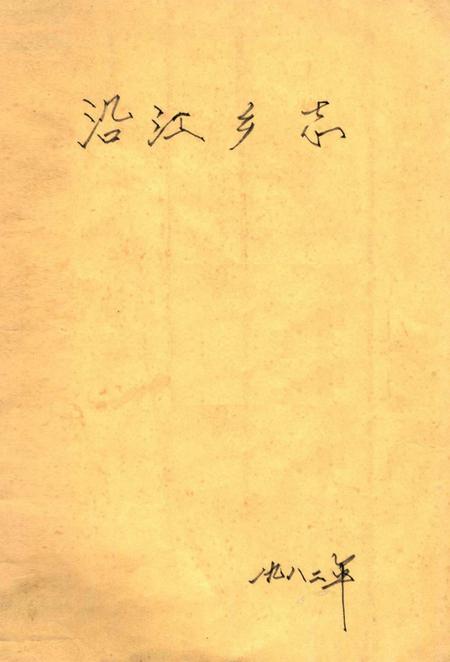 沿江乡志
一九八二年